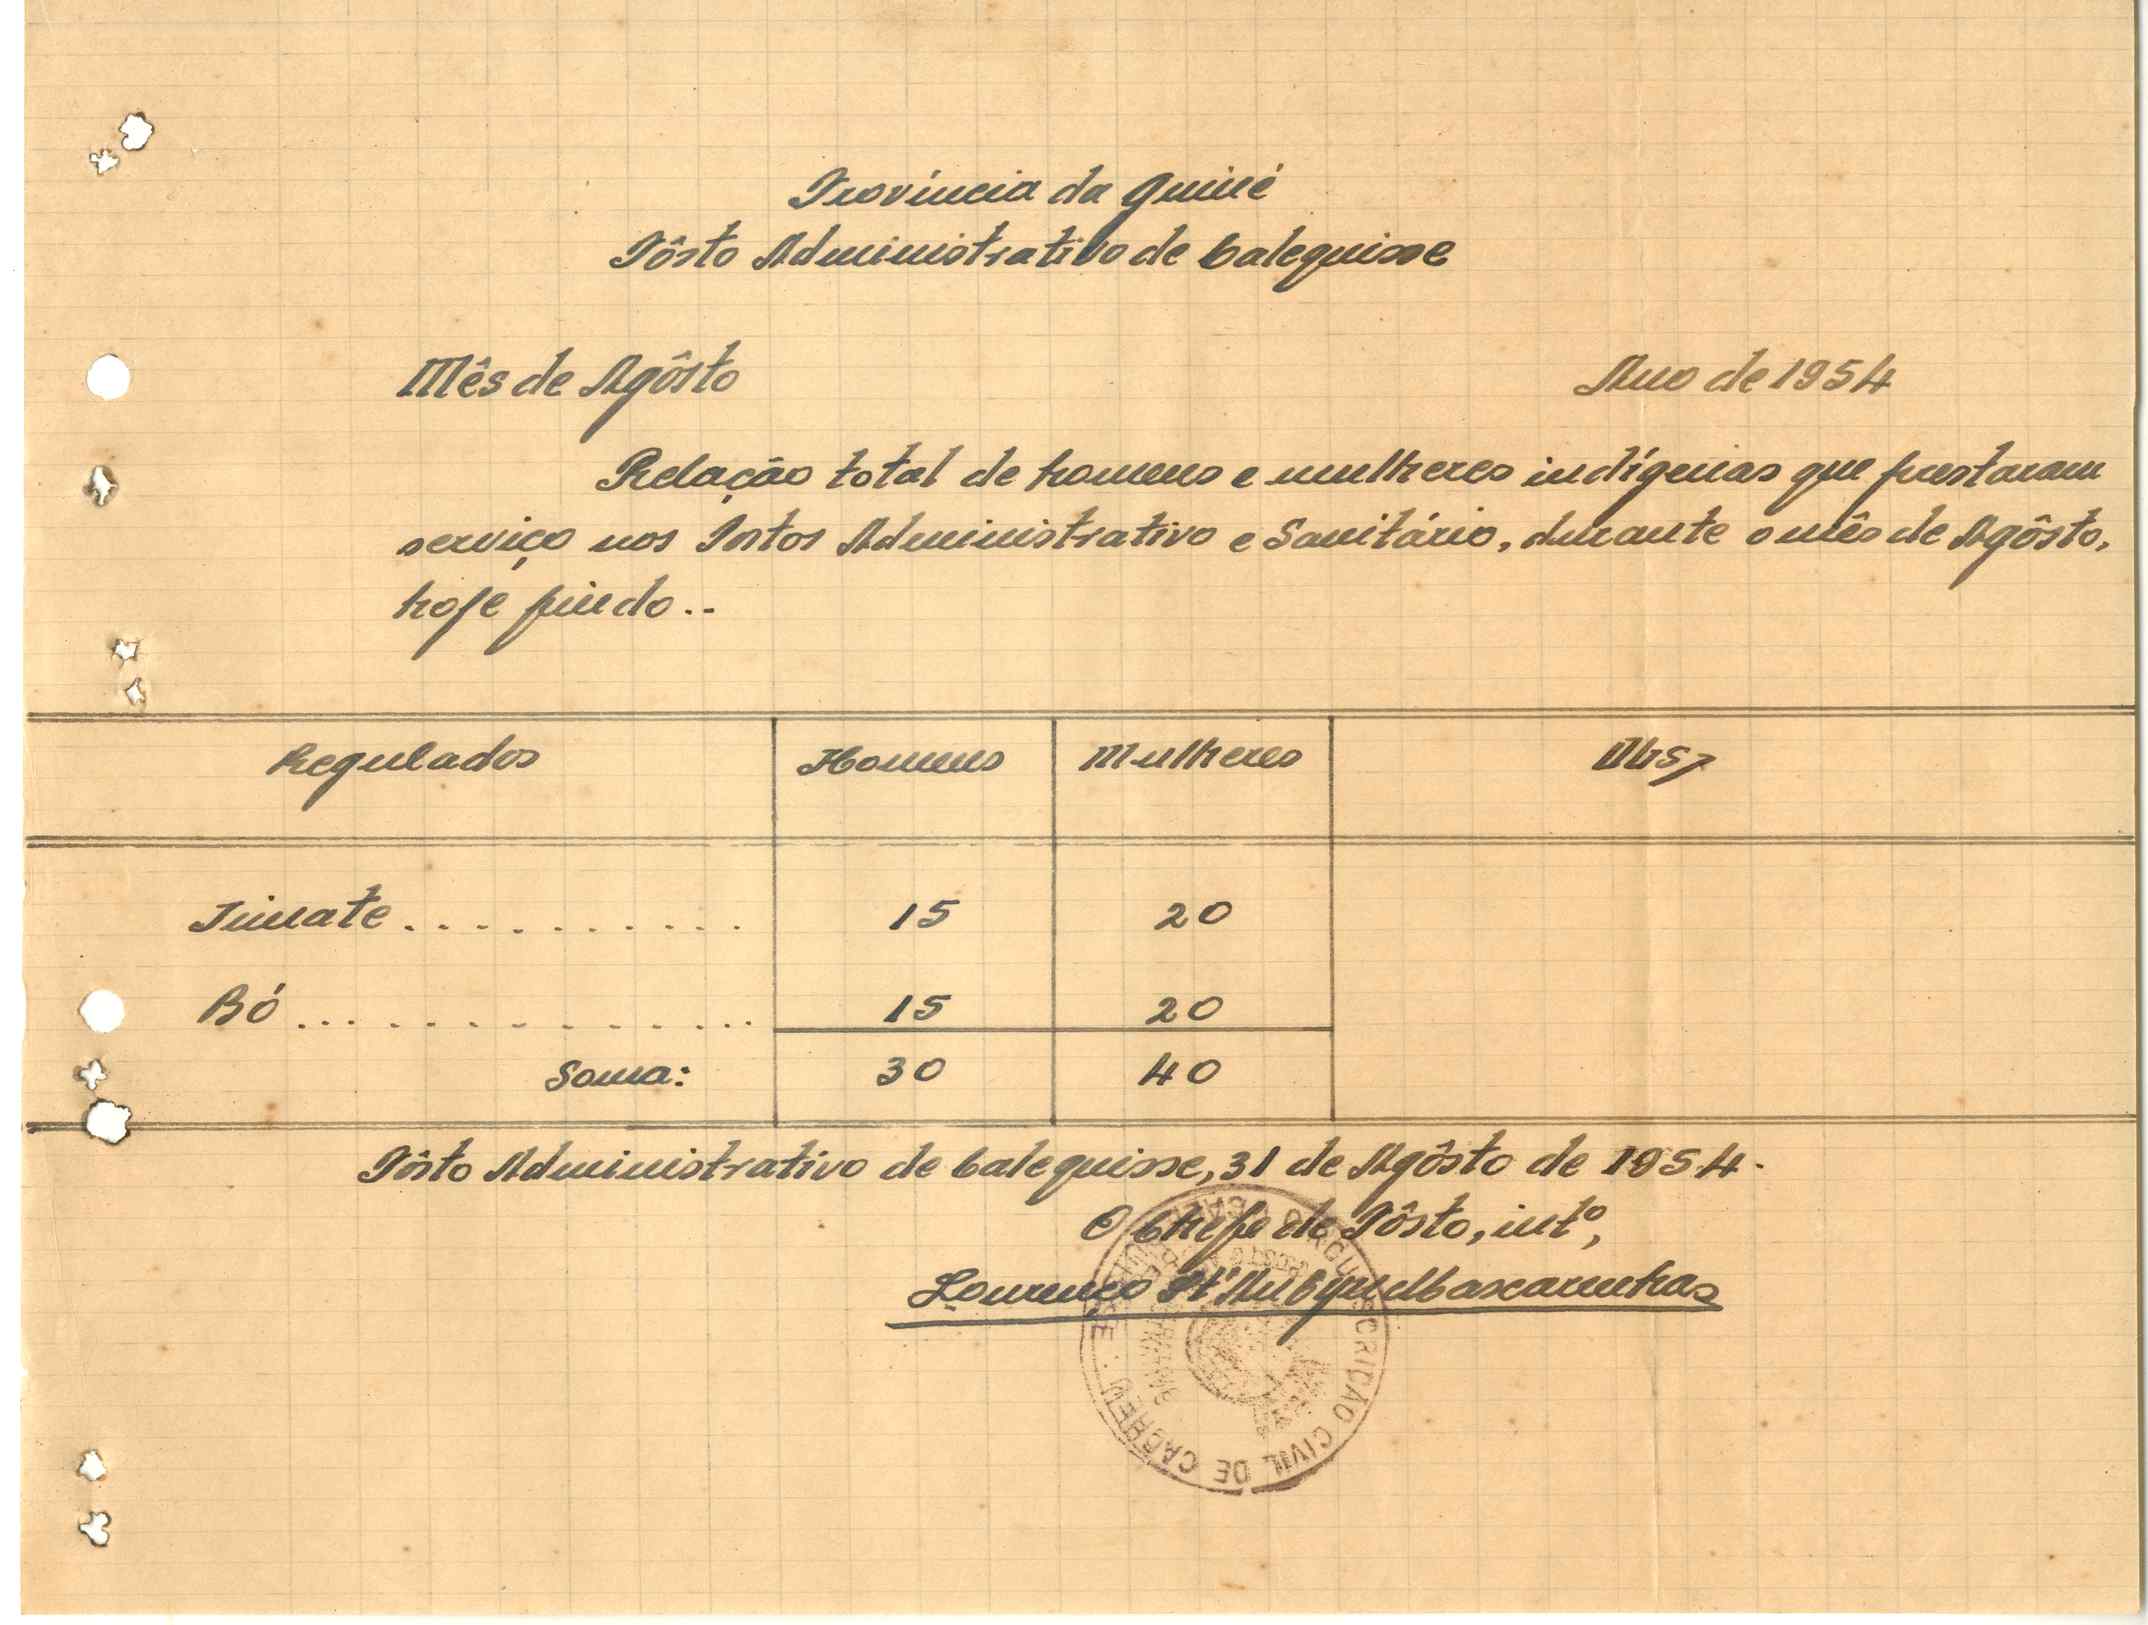 Província da Guiné
Pôsto Administrativo de Calequisse
Mês de Agôsto Ano de 1954
Relação total de homens e mulheres indígenas que prestaram
serviço nos Postos Administrativo e Sanitário, durante o mês de Agôsto,
hoje findo..
Regulados Homens Mulheres Obs,
Timate........... 15 20
Bó............... 15 20
Soma: 30 40
Pôsto Administrativo de Calequisse, 31 de Agôsto de 1954.
O Chefe do Pôsto, intº,
Lourenço Mascarenhas
CIRCUNSCRIÇÃO CIVIL DE CACHEU